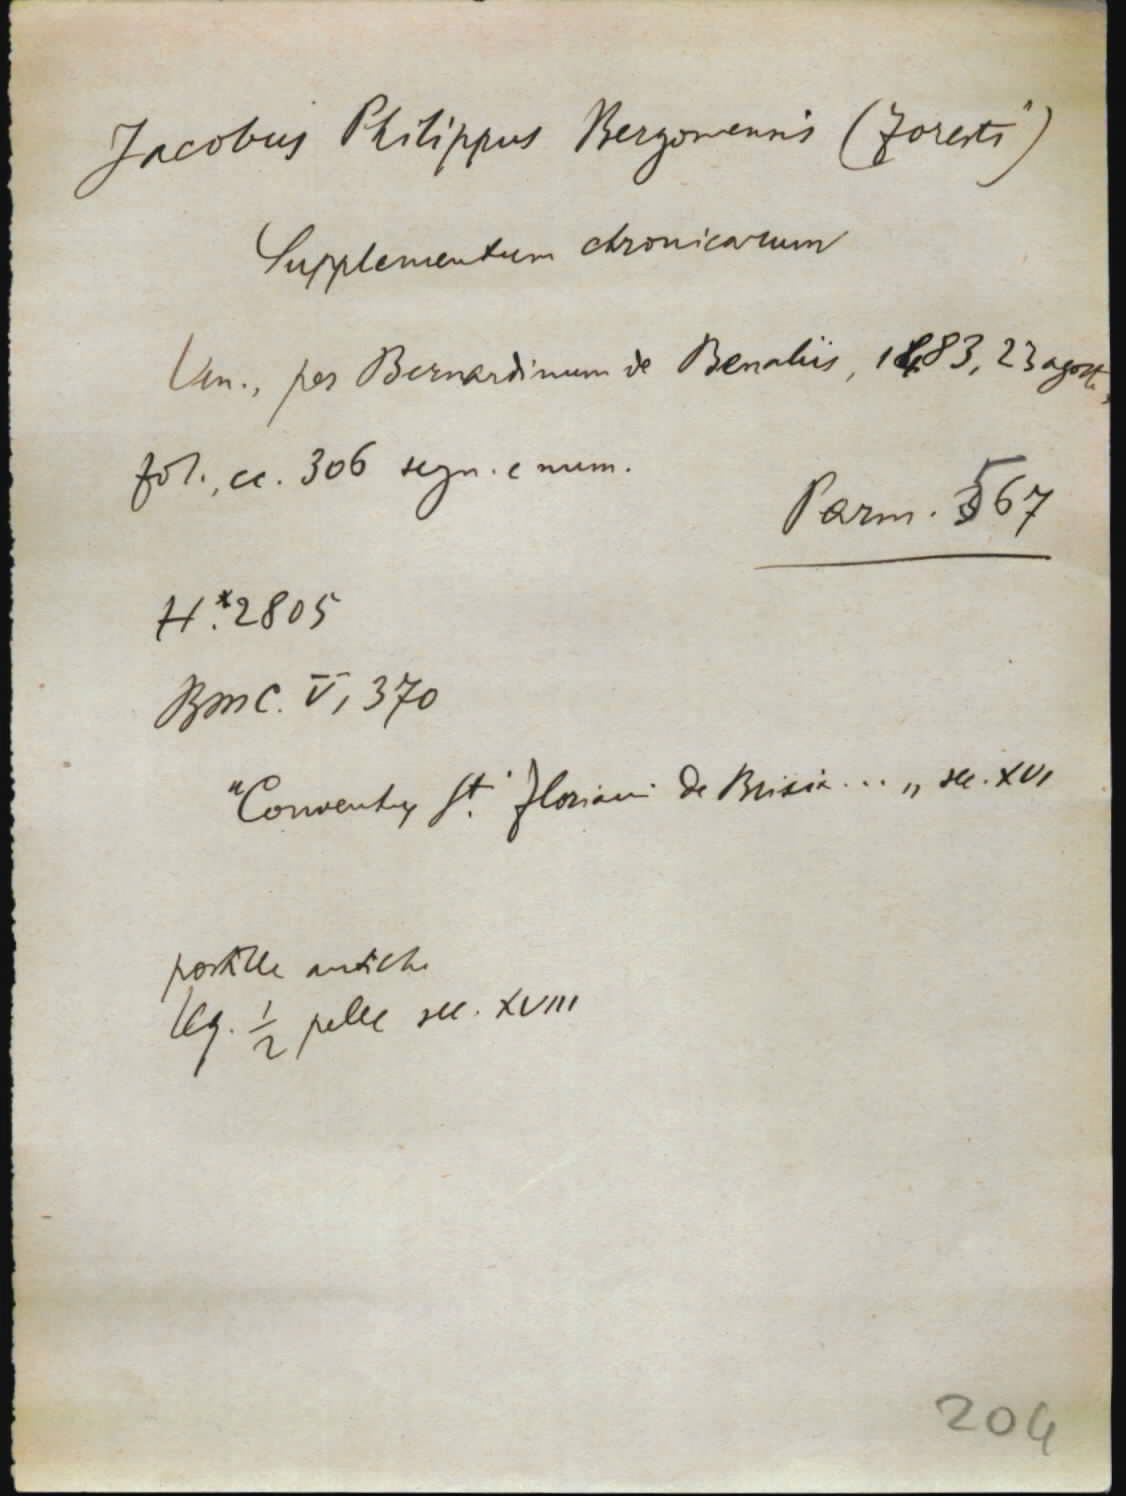 Jacobus Philippus Bergomensis (Foresti)
Supplementum chronicarum
Ven., per Bernardinum de Benaliis, 1483, 23 agosto,
fol., cc. 306 segn. e num.
Parm. 567
H.*2805
BMC. V, 370
"Conventus St. Floriani de Brixia ... „ sec. XVI
postille antiche
leg. 1/2 pelle sec. XVIII
204